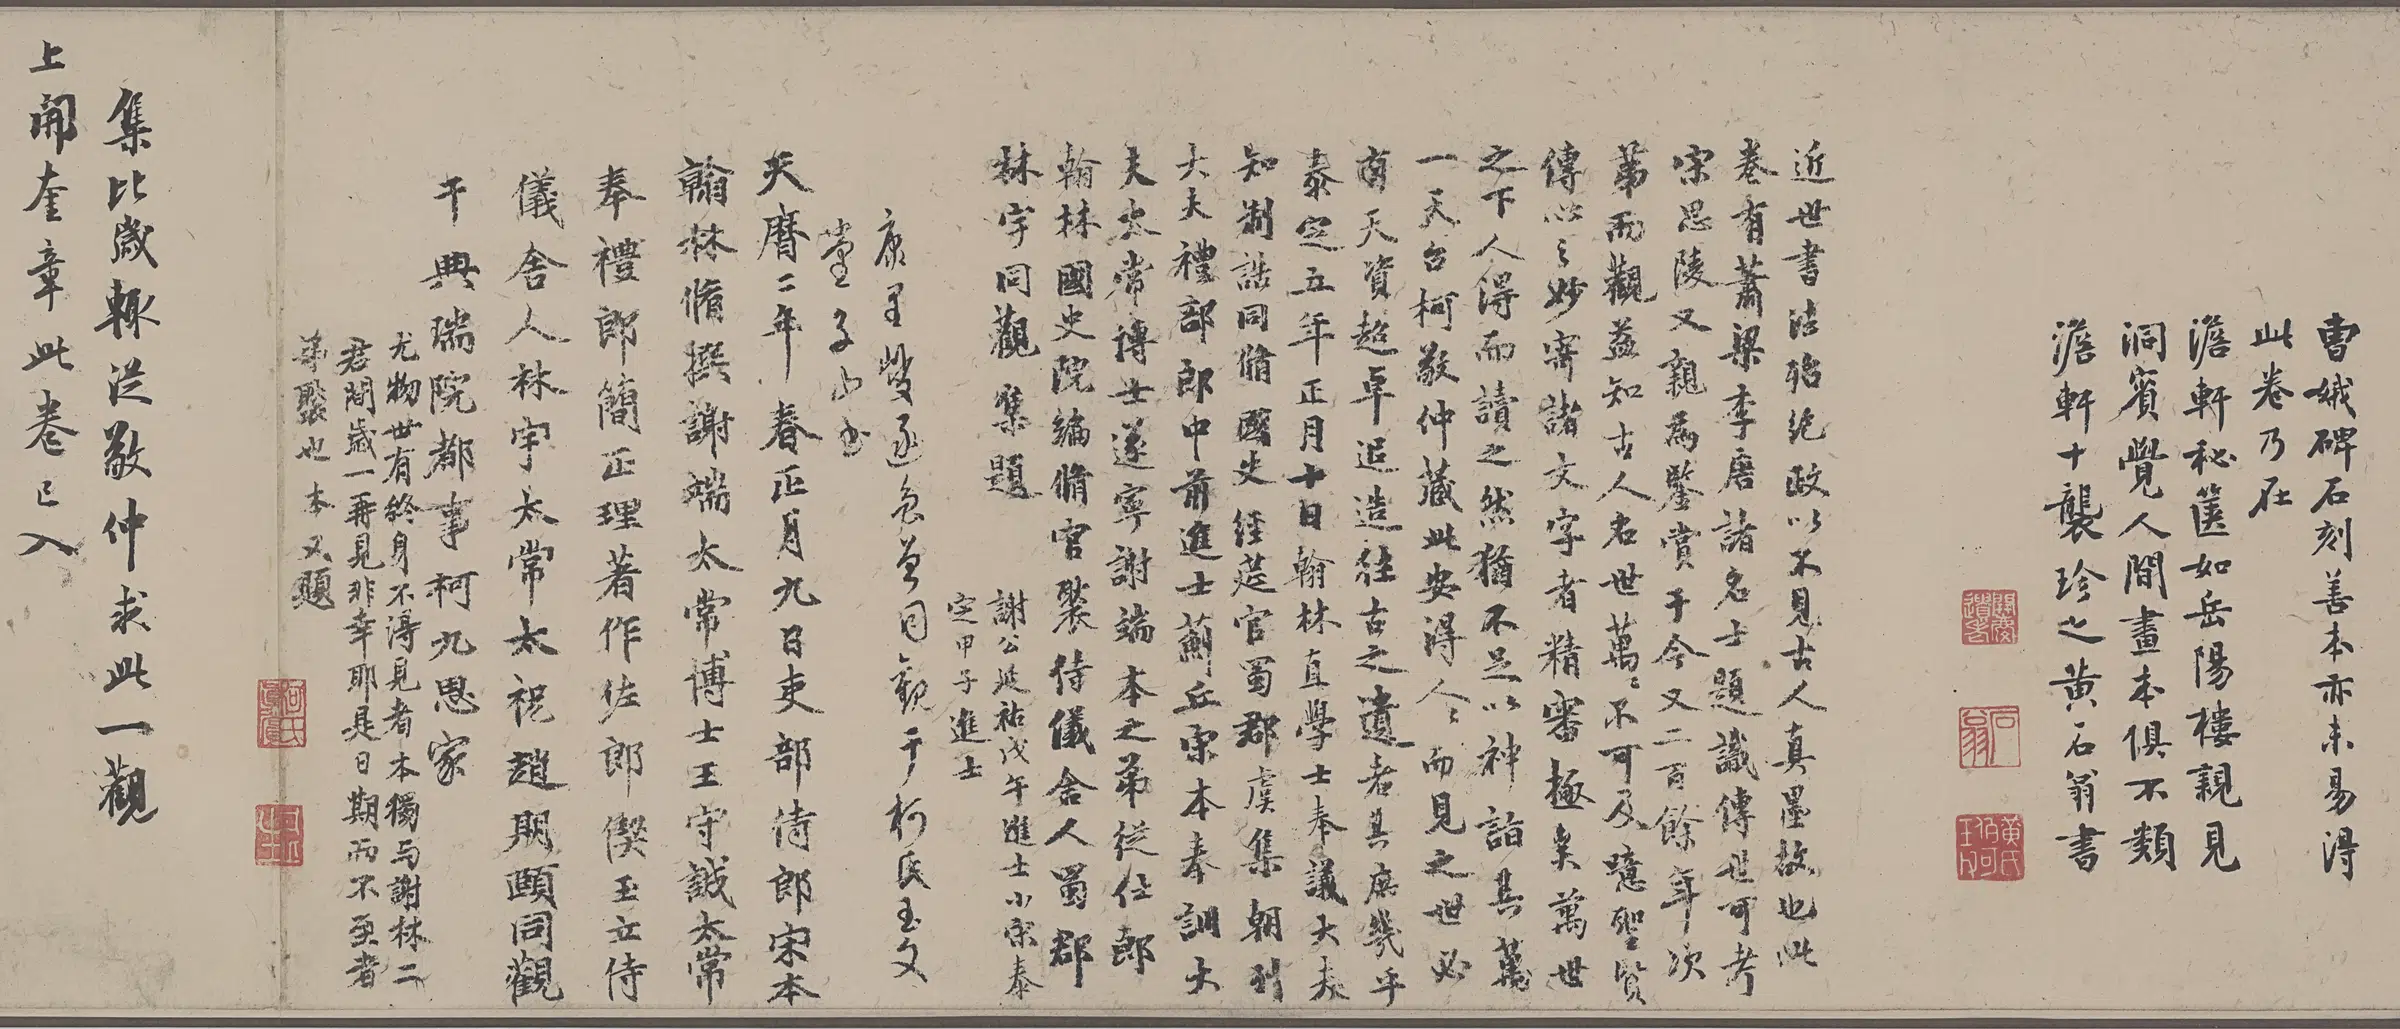 曹娥碑石刻善本亦未易得
此卷乃在
澹軒秘篋如岳陽樓親見
洞賓覺人間畫本俱不類
澹軒十襲珍之黄石翁書
近世書法殆絕政以不見古人真墨故也此
卷有蕭梁李唐諸名士題識傳世可考
宋思陵又親爲鑒賞于今又二百餘年次
第而觀益知古人名世萬萬不可及噫聖賢
傳心之妙寄諸文字者精審極矣萬世
之下人得而讀之然猶不足以神詣其萬
一天台柯敬仲藏此安得人人而見之世必
有天資超卓追造往古之遺者其庶幾乎
泰定五年正月十日翰林直學士奉議大夫
知制誥同脩國史經筵官蜀郡虞集朝列
大夫禮部郎中前進士薊丘宋本奉訓大
夫太常博士遂寧謝端本之弟從仕郎
翰林國史院編脩官褧侍儀舍人蜀郡
林宇同觀 集題
謝公延祐戊午進士小宋泰
定甲子進士
康里巎逐魯曾同觀于柯氏玉文
堂子山書
天曆二年春正月九日吏部侍郎宋本
翰林脩撰謝端太常博士王守誠太常
奉禮郎簡正理著作佐郎偰玉立侍
儀舍人林宇太常太祝趙期頤同觀
于典瑞院都事柯九思家
尤物世有終身不得見者本獨與謝林二
君間歲一再見非幸耶是日期而不至者
弟褧也 本又題
集比歲輒從敬仲求此一觀
上開奎章此卷已入